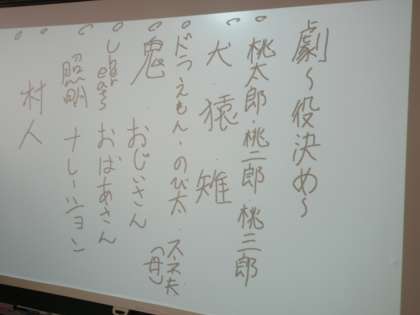 劇～役決め～
桃太郎・桃二郎・桃三郎
犬 猿 雉
ドラえもん・のび太・スネ夫(母)
鬼 おじいさん
おばあさん
照明 ナレーション
村人